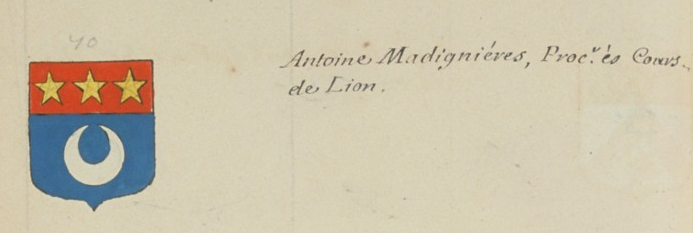 40
Antoine Madigniéres, Proc.r és Cours
de Lion.